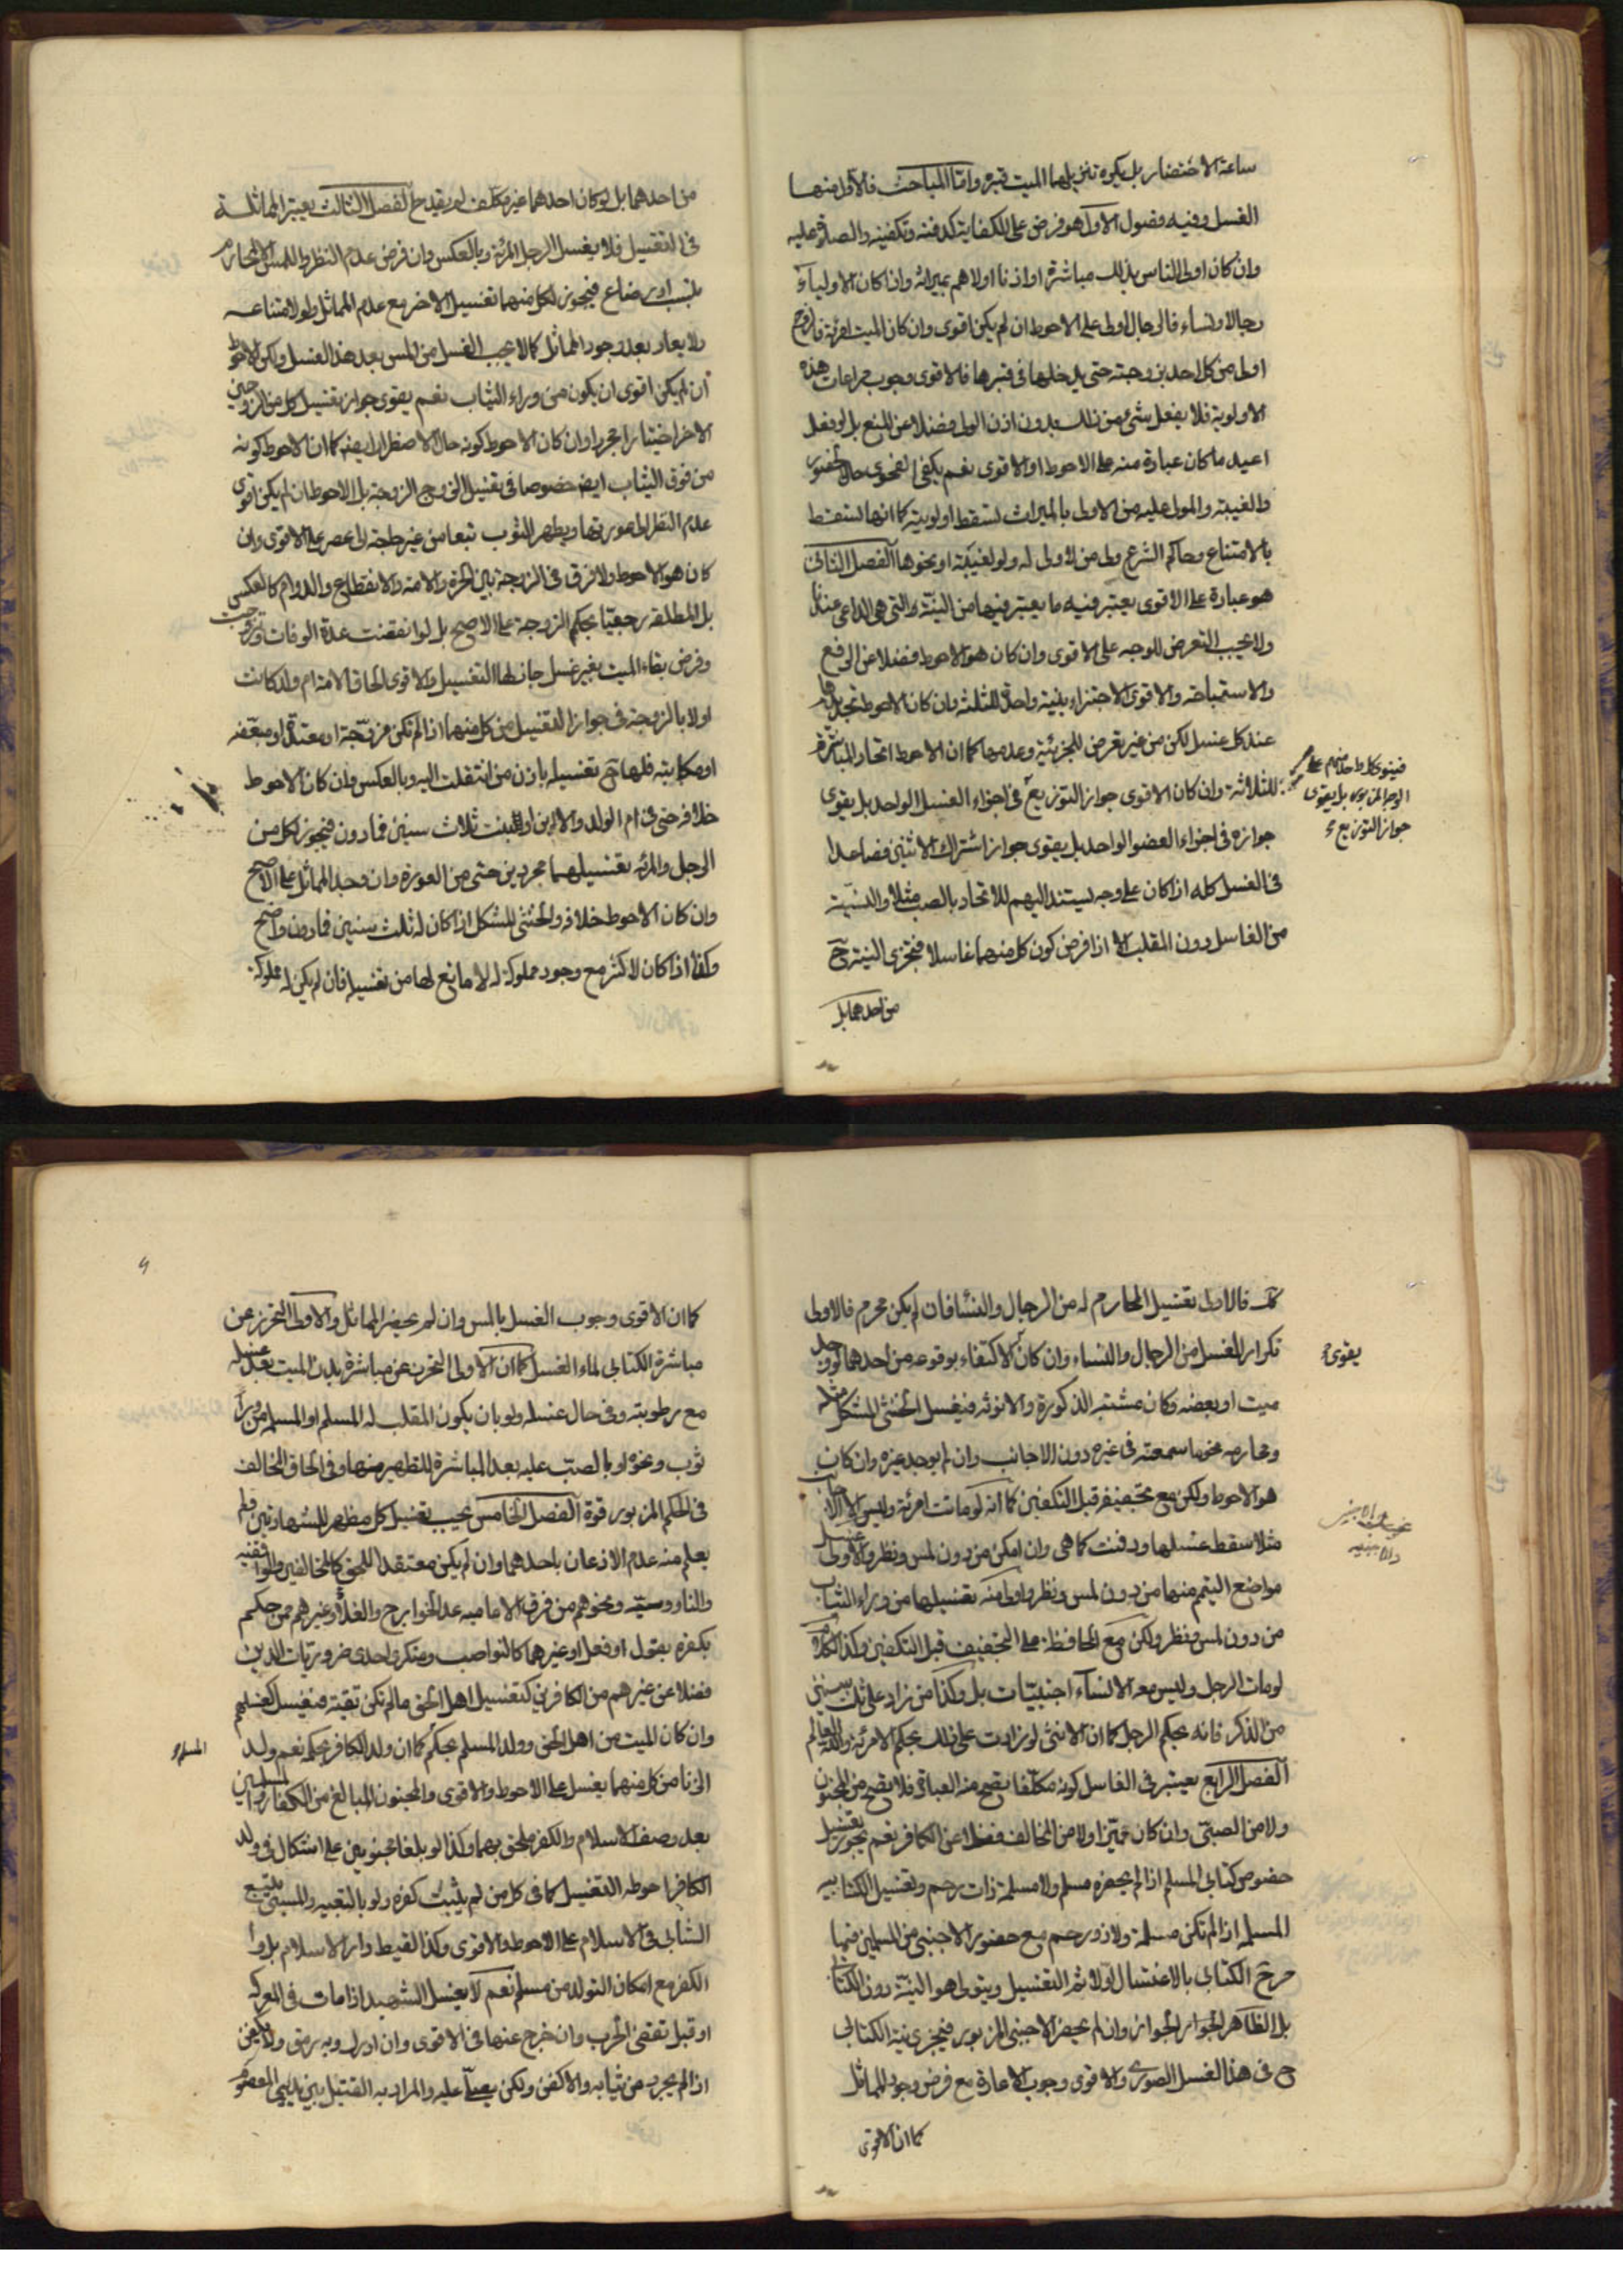 ساعة الاحتضار بل يكره تنزيلها الميت قبره واما المباحث فالاول منها
الغسل وفيه فصول الاول هو فرض على الكفاية كدفنه وتكفينه والصلوة عليه
وان كان اولى الناس بذلك مباشرة او اذنا اولاهم بميراثه واذا كان الاولياء
رجالا ونساء فالرجال اولى على الاحوط ان لم يكن اقوى وان كان الميت امرئة فالزوج
اولى من كل احد بزوجته حتى يدخلها في قبرها فالاقوى وجوب مراعات هذه
الاولوية فلا يفعل شيء من ذلك بدون اذن الولي فضلا عن المنع بل لو فعل
اعيد ما كان عبادة منه على الاحوط او الاقوى نعم يكفي الفحوى حال الحضور
والغيبة والمولى عليه من الاولى بالميراث تسقط اولويته كما انها تسقط
بالامتناع وحاكم الشرع ولي من لا ولي له ولو لغيبته او نحوها الفصل الثاني
هو عبادة على الاقوى يعتبر فيه ما يعتبر فيها من النية والتي هي الداعي عندنا
ولا يجب التعرض للوجه على الاقوى وان كان هو الاحوط فضلا عن الرفع
والاستباحة والاقوى الاجتزاء بنية واحدة للثلثة وان كان الاحوط تجديدها
عند كل غسل لكن من غير تعرض للجزئية وعدمها كما ان الاحوط اتحاد المباشر
للثلاثة وان كان الاقوى جواز التوزيع في اجزاء الغسل الواحد بل يقوى
جوازه في اجزاء العضو الواحد بل يقوى جواز اشتراك الاثنين فصاعدا
في الغسل كله اذا كان على وجه يستند اليهم للاتحاد بالصب مثلا والنية
من الغاسل دون المقلب الا اذا فرض كون كل منهما غاسلا فتجزى النية ح
من احدهما بل
فينوى كل واحد منهم على
الوجه المزبور بل يقوى
جواز التوزيع
من احدهما بل لو كان احدهما غير مكلف لم يقدح الفصل الثالث يعتبر المماثلة
في التغسيل فلا يغسل الرجل المرئة وبالعكس وان فرض عدم النظر واللمس الا المحارم
بنسب او رضاع فيجوز لكل منهما تغسيل الاخر مع عدم المماثل ولو لامتناعه
ولا يعاد بعد وجود المماثل كما لا يجب الغسل من المس بعد هذا الغسل ولكن الاحوط
ان لم يكن اقوى ان يكون من وراء الثياب نعم يقوى جواز تغسيل كل من الزوجين
الاخر اختيارا مجردا وان كان الاحوط كونه حال الاضطرار ايضه كما ان الاحوط كونه
من فوق الثياب ايضه خصوصا في تغسيل الزوج الزوجة بل الاحوط ان لم يكن اقوى
عدم النظر الى عورتها ويطهر الثوب تبعا من غير حاجة الى عصر على الاقوى وان
كان هو الاحوط ولا فرق في الزوجة بين الحرة والامة والانقطاع والدوام كالعكس
بل المطلقة رجعيا بحكم الزوجة على الاصح بل لو انقضت عدة الوفات وتزوجت
وفرض بقاء الميت بغير غسل جاز لها التغسيل والاقوى الحاق الامة ام ولد كانت
اولا بالزوجة في جواز التغسيل من كل منهما اذا لم تكن مزوجة او معتدة او مبعضة
او مكاتبة فلها ح تغسيله باذن من انتقلت اليه وبالعكس وان كان الاحوط
خلافه حتى في ام الولد والابن او البنت ثلاث سنين فما دون فيجوز لكل من
الرجل والمرئه تغسيلهما مجردين حتى من العورة وان وجد المماثل على الاصح
وان كان الاحوط خلافه والخنثى المشكل اذا كان له ثلث سنين فما دون واضح
وكذا اذا كان لاكثر مع وجود مملوكة له لا مانع لها من تغسيله فان لم يكن له مملوكة
كك فالاولى تغسيل المحارم له من الرجال والنساء فان لم يكن محرم فالاولى
تكرار الغسل من الرجال والنساء وان كان الاكتفاء بوقوعه من احدهما لو وجد
ميت او بعضه وكان مشتبه الذكورة والانوثه فيغسل الخنثى المشكل مثله
ومحارمه نحو ما سمعته في غيره دون الاجانب وان لم يوجد غيره وان كان
هو الاحوط ولكن مع تجفيفه قبل التكفين كما انه لو ماتت امرئة وليس الا الاجانب
مثلا سقط غسلها ودفنت كما هي وان امكن من دون لمس ونظر والاولى غسل
مواضع التيمم منها من دون لمس ونظر واولى منه تغسيلها من وراء الثياب
من دون لمس ونظر ولكن مع المحافظة على التجفيف قبل التكفين وكذا الكلام
لو مات الرجل وليس معه الا نساء اجنبيات بل وكذا من زاد على ثلث سنين
من الذكر فانه بحكم الرجل كما ان الانثى لو زادت على ذلك بحكم الامرئة والله العالم
الفصل الرابع يعتبر في الغاسل كونه مكلفا يصح منه العبادة فلا يصح من المجنون
ولا من الصبي وان كان مميزا ولا من المخالف فضلا عن الكافر نعم يجوز تغسيل
خصوص كتابي المسلم اذا لم يحضره مسلم ولا مسلمة ذات رحم وتغسيل الكتابيه
المسلمه اذا لم تكن مسلمة ولا ذو رحم مع حضور الاجنبي من المسلمين فيهما
الكتابي بالاغتسال اولا ثم التغسيل ويتولى هو النية دون الكتابي
بل الظاهر الجواز وان لم يحضر الاجنبي المزبور فيجزى نية الكتابي
ح في هذا الغسل الصوري والاقوى وجوب الاعادة مع فرض وجود المماثل
كما ان الاقوى
يقوى
كما ان الاقوى وجوب الغسل بالمس وان لم يحضر المماثل والاولى التحرز عن
مباشرة الكتابي لماء الغسل كما ان الاولى التحرز عن مباشرة بدن الميت بعد غسله
مع رطوبته وفي حال غسله ولو بان يكون المقلب له المسلم او المسلمه من وراء
ثوب ونحوه او بالصب عليه بعد المباشرة للتطهير منها وفي الحاق المخالف
في الحكم المزبور قوة الفصل الخامس يجب تغسيل كل مظهر للشهادتين ولم
يعلم منه عدم الاذعان باحدهما وان لم يكن معتقدا للحق كالمخالفين والواقفيه
والناووسية ونحوهم من فرق الاماميه عدا الخوارج والغلاة وغيرهم ممن حكم
بكفره بقول او فعل او غيرهما كالنواصب ومنكري احدى ضروريات الدين
فضلا عن غيرهم من الكافرين كتغسيل اهل الحق ما لم تكن تقية فيغسل كغسلهم
وان كان الميت من اهل الحق وولد المسلم بحكمه كما ان ولد الكافر بحكمه نعم ولد
الزنا من كل منهما يغسل على الاحوط والاقوى والمجنون البالغ من الكفار والمسلمين
بعد وصف الاسلام والكفر ملحق بهما وكذا لو بلغا مجنونين على اشكال في ولد
الكافر احوطه التغسيل كما في كل من لم يثبت كفره ولو بالتبعيه والمسبي يتبع
السابي في الاسلام على الاحوط والاقوى وكذا لقيط دار الاسلام بل دار
الكفر مع امكان التولد من مسلم نعم لا يغسل الشهيد اذا مات في المعركه
او قبل تقضي الحرب وان خرج عنها في الاقوى وان ادرك وبه رمق ولا يكفن
اذا لم يجرد من ثيابه والا كفن ولكن يصلى عليه والمراد به القتيل بين يدي المعصوم
المسلم